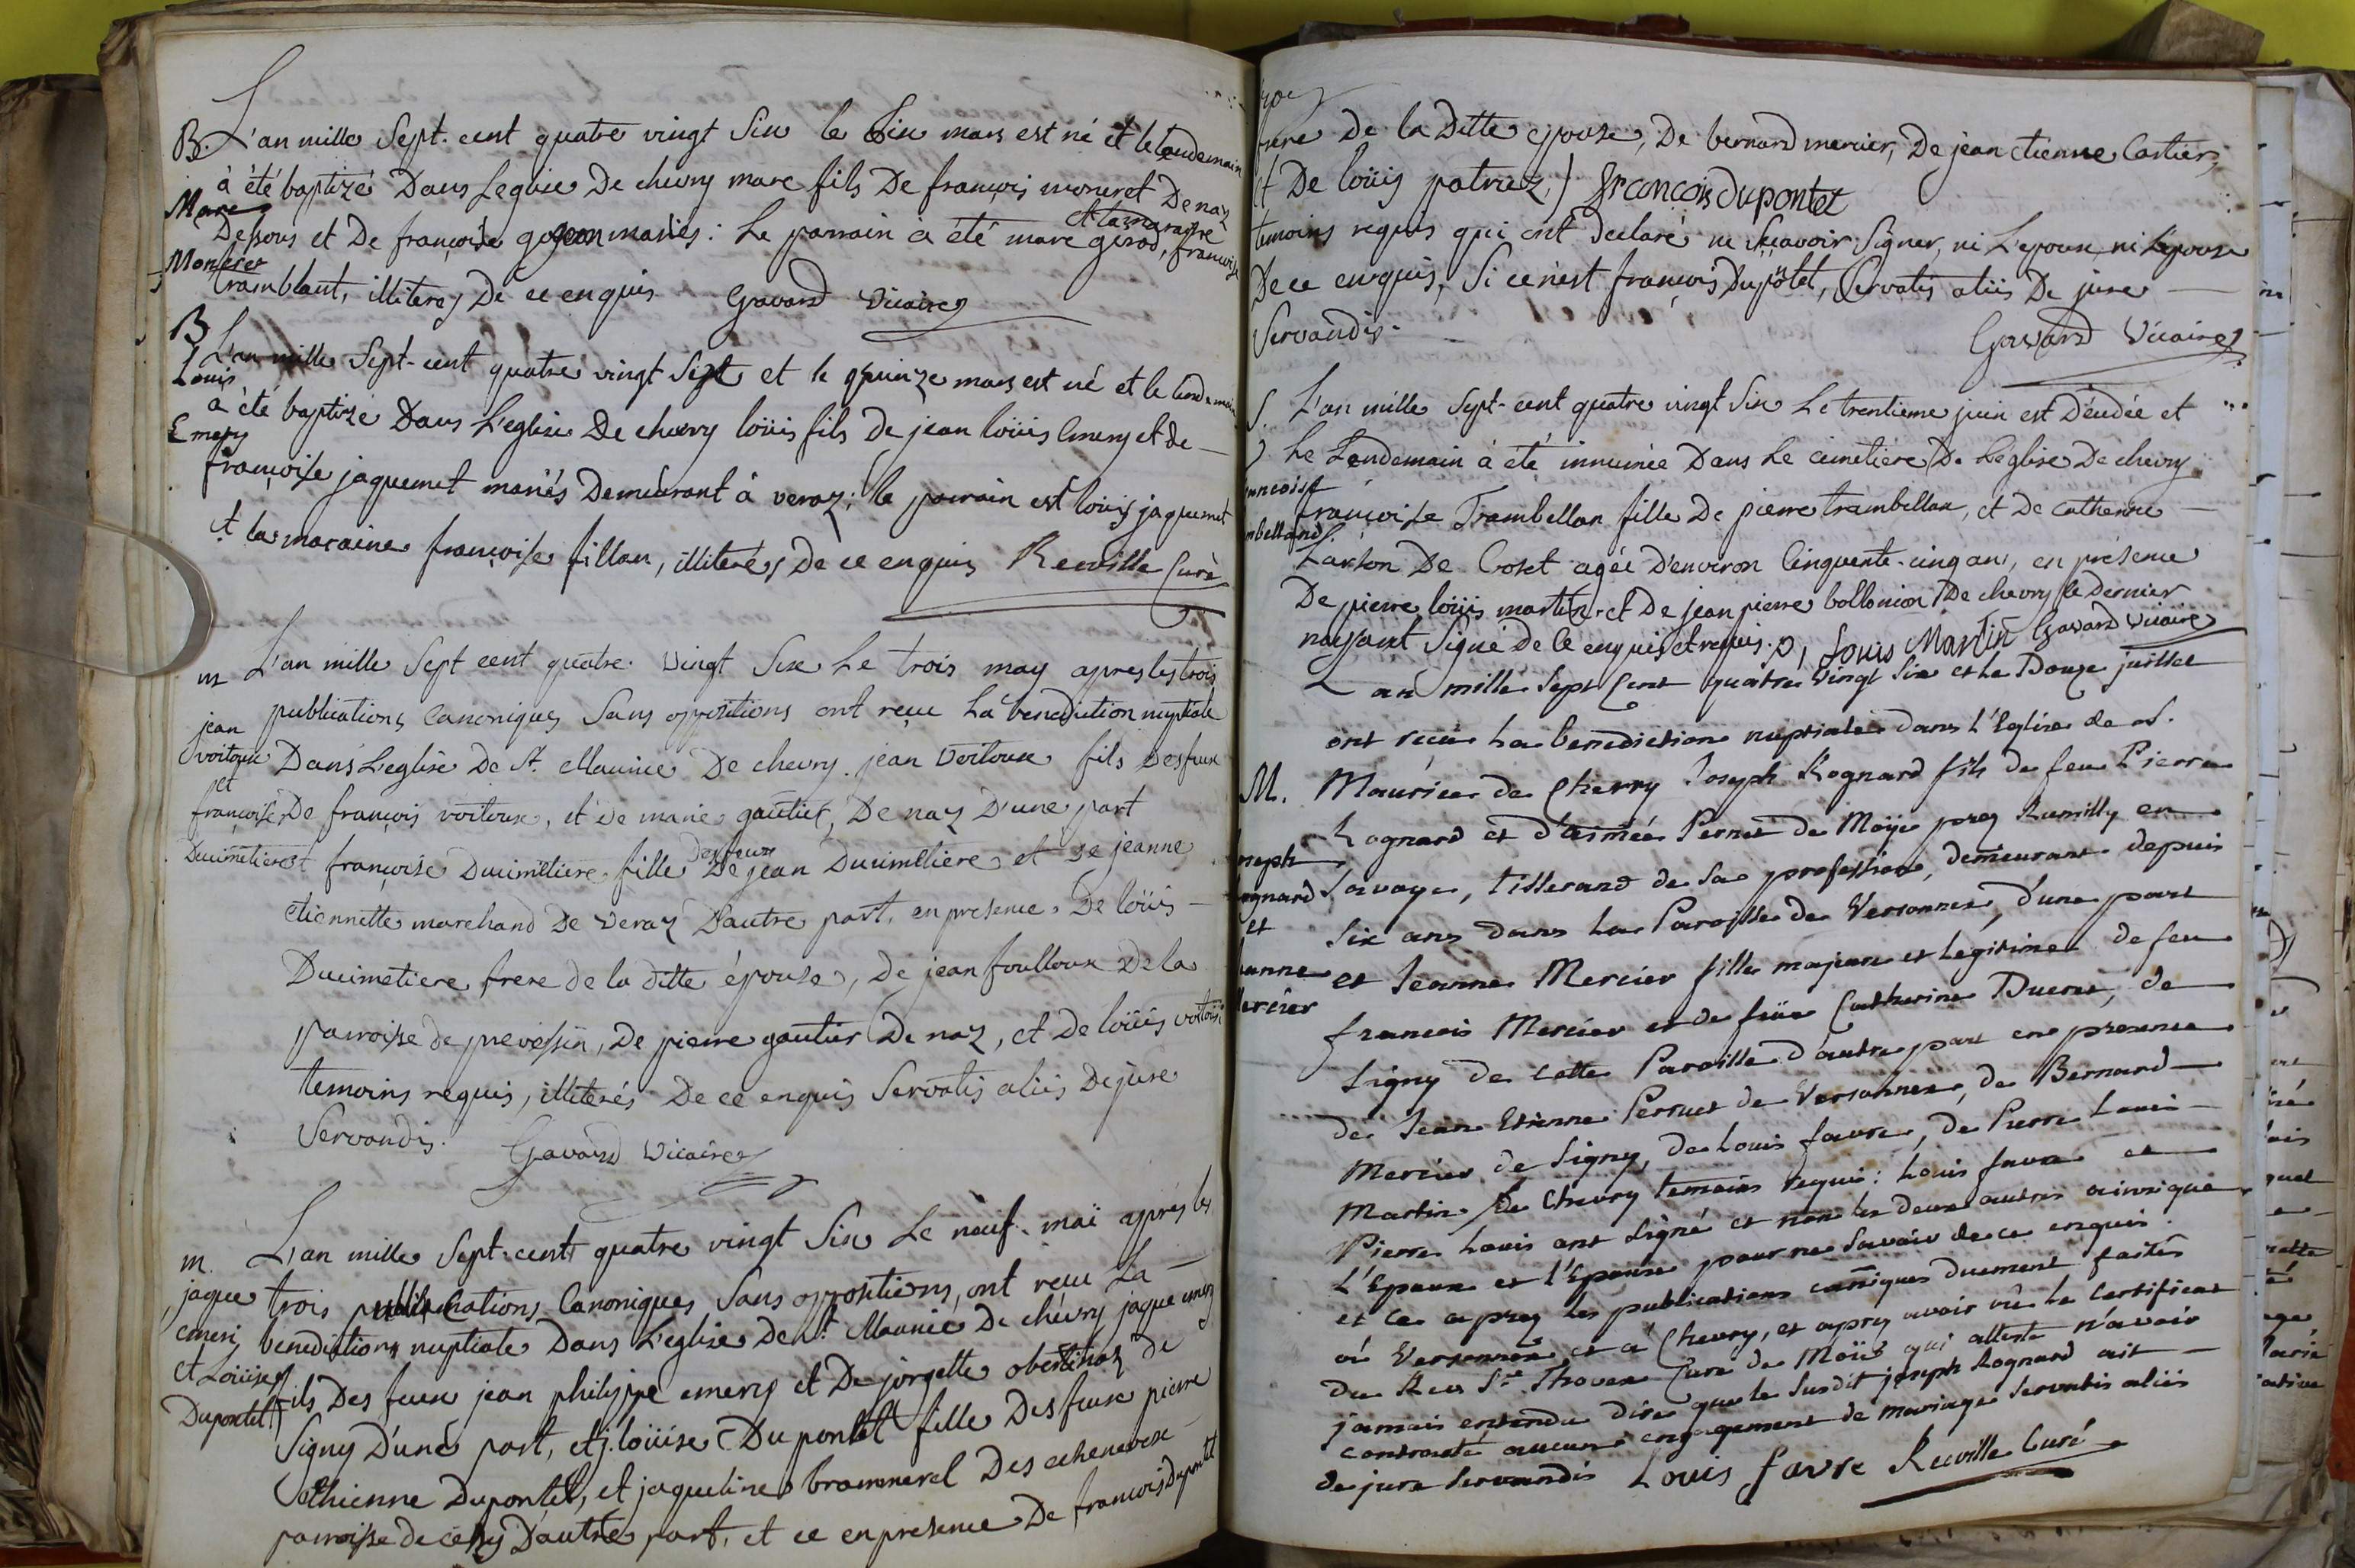 B. L'an mille Sept-cent quatre vingt Six le Six mars est né et le lendemain
à été baptizé Dans Leglise De chevry marc fils De françois moneret De naz
Marc
Dessous et De françoise gojon mariés: Le parrain à été marc girod, et la maraine françoise
Moneret
tramblant, illiteres De ce enquis Gavard Vicaire
B
L'an mille Sept-cent quatre vingt Sept et le quinze mars est né et le lendemain
Louis
à été baptizé Dans L'eglise De chevry loüis fils De jean loüis Emery et de
Emery
françoise jaquemet mariés Demeurant à veraz: le parrain est loüis jaquemet
et la maraine françoise fillon, illiterés De ce enquis Reuville Curé
m L'an mille Sept cent quatre vingt Six Le trois may apres les trois
publications Canoniques Sans oppositions ont reçue La benediction nuptiale
jean
voitoux Dans L'eglise De St. Maurice De chevry jean Voitoux fils Desfeux
et
françoise De françois voitoux, et De marie gautier, De naz D'une part
Ducimetiere et françoise Ducimetiere fille Desfeux De jean Ducimetiere et De jeanne
etiennette marchand De veraz D'autre part, en presence De loüis
Ducimetiere frere de la ditte épouse, De jean foulloux De la
parroisse de prevessin, De pierre gautier De naz, et De loüis voitoux
temoins requis, illiterés De ce enquis Servatis aliis De jure
Servandis. Gavard Vicaire
m. L'an mille Sept-cent quatre vingt Six Le neuf mai après les
jaque trois publications Canoniques Sans oppositions, ont reçue La
emeri benediction nuptiale Dans L'eglise De St. Maurice De chevry jaque emery
et Loüise fils Des feux jean philippe emery et De jorgette
Dupontet Signy D'une part, et j. loüise Dupontet fille Des feux pierre
Ethienne Dupontet, et jaqueline brammerel Des echenevex
parroisse de cessy D'autre part, et ce en presence De françois Dupontet
frere De la Ditte epouse, De bernard mercier, De jean etienne Cartier,
et De loüis patriez) francois dupontet
temoins requis qui ont declaré ne Sçavoir Signer, ni L'epoux, ni L'epouse
De ce enquis, Si ce n'est françois Dupontet, Servatis aliis De jure
Servandis. Gavard Vicaire
S. L'an mille Sept-cent quatre vingt Six Le trentieme juin est Décédée et
Le Lendemain à été innumée Dans Le cimetiere De L'eglise De chevry
françoise Trambellan fille De pierre trambellan, et De catherine
De agée D'environ Cinquente-cinq ans, en présence
De pierre loüis martin et De jean pierre De chevry le Dernier
nayant Signé de Ce enquis et requis. P, Louis Martin Gavard Vicaire
L an mille Sept Cent quatre vingt Six et le Douze juillet
ont reçu La benediction nuptiale dans l'Eglise de St.
M. Maurice de Chevry Joseph Rognard fils de feu Pierre
Rognard et d'Aimée Pernet de Moÿe prez Rumilly en
Joseph
Rognard Savoye, tisserand de Sa profession, demeurant depuis
et Six ans dans La Paroisse de Versonnex, d'une part
Jeanne et Jeanne Mercier fille majeure et Legitime de feu
Mercier
francois Mercier et de feüe Catherine Ducret, de
Signy de cette Paroisse d'autre part en presence
de Jean Etienne Perruet de Versonnex, de Bernard
Mercier de Signy, de Louis favre, de Pierre Louis
Martin de Chevry temoins requis: Louis favre et
Pierre Louis ont Signé et non les deux autres ainsi que
L'Epoux et L'Epouse pour ne Savoir de ce enquis.
et Ce aprez les publications canoniques duement faites
à Versonnex et à Chevry, et aprez avoir vû le Certificat
du Rev Sr Thovex Curé de Moÿe qui atteste n'avoir
jamais entendu dire que le Susdit joseph Rognard ait
contracté aucun engagement de mariage Servatis aliis
de jure Servandis Louis favre Reuville Curé